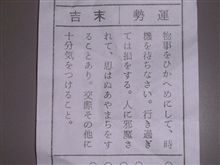 運勢
末吉
物事をひかへめにして、時
機を待ちなさい。行き過ぎ
ては損をする。人に邪魔さ
れて、思はぬあやまちをす
ることあり。交際その他に
十分気をつけること。